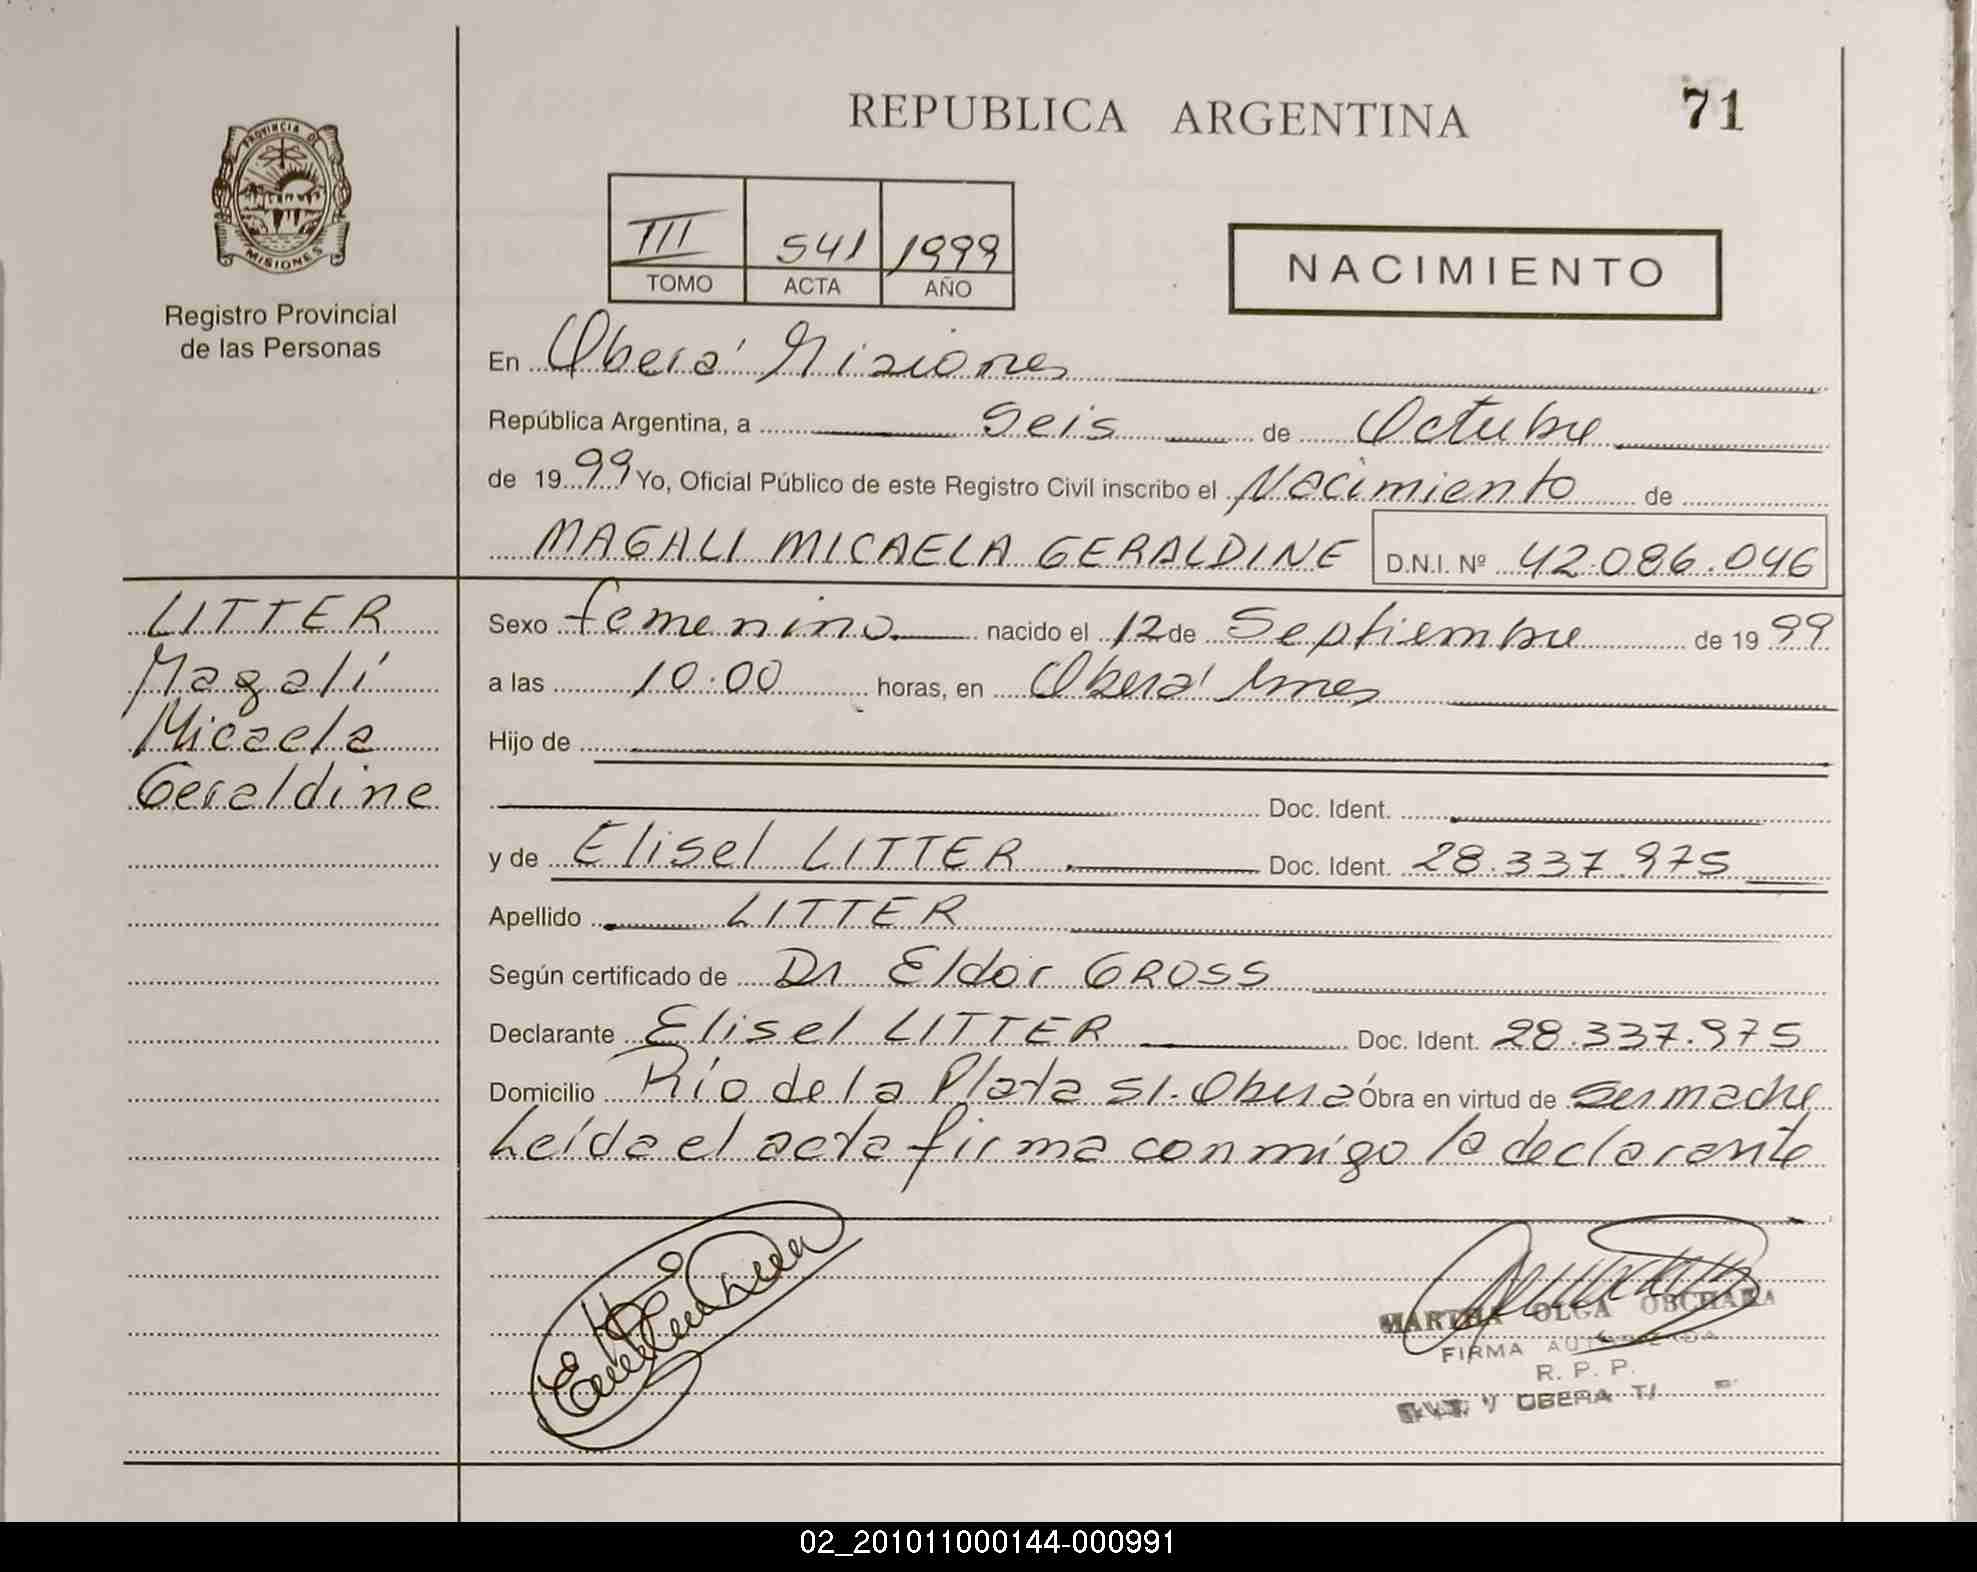 REPUBLICA ARGENTINA
71
PROVINCIA DE
MISIONES
Registro Provincial
de las Personas
III 541 1999
TOMO ACTA AÑO
NACIMIENTO
En Oberá Misiones
República Argentina, a Seis de Octubre
de 1999 Yo, Oficial Público de este Registro Civil inscribo el Nacimiento de
MAGALI MICAELA GERALDINE D.N.I. Nº 42.086.046
LITTER
Magalí
Micaela
Geraldine
Sexo femenino nacido el 12 de Septiembre de 1999
a las 10:00 horas, en Oberá Mnes
Hijo de
Doc. Ident.
y de Elisel LITTER Doc. Ident. 28.337.975
Apellido LITTER
Según certificado de Dr Eldor GROSS
Declarante Elisel LITTER Doc. Ident. 28.337.975
Domicilio Río de la Plata S/. Oberá Obra en virtud de ser madre
Leída el acta firma conmigo la declarante
MARTHA OLGA OBCHARA
FIRMA AUTORIZADA
R. P. P.
OBERA
02_201011000144-000991